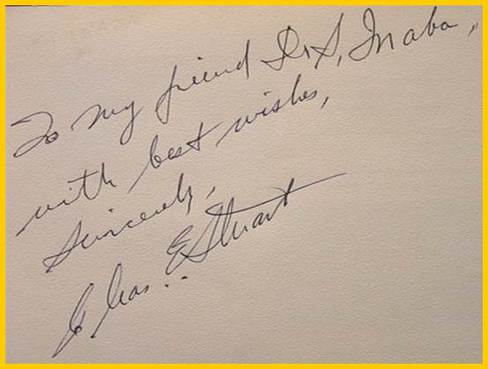 To my friend Dr S. Inaba,
with best wishes,
Sincerely,
Chas. E Stuart